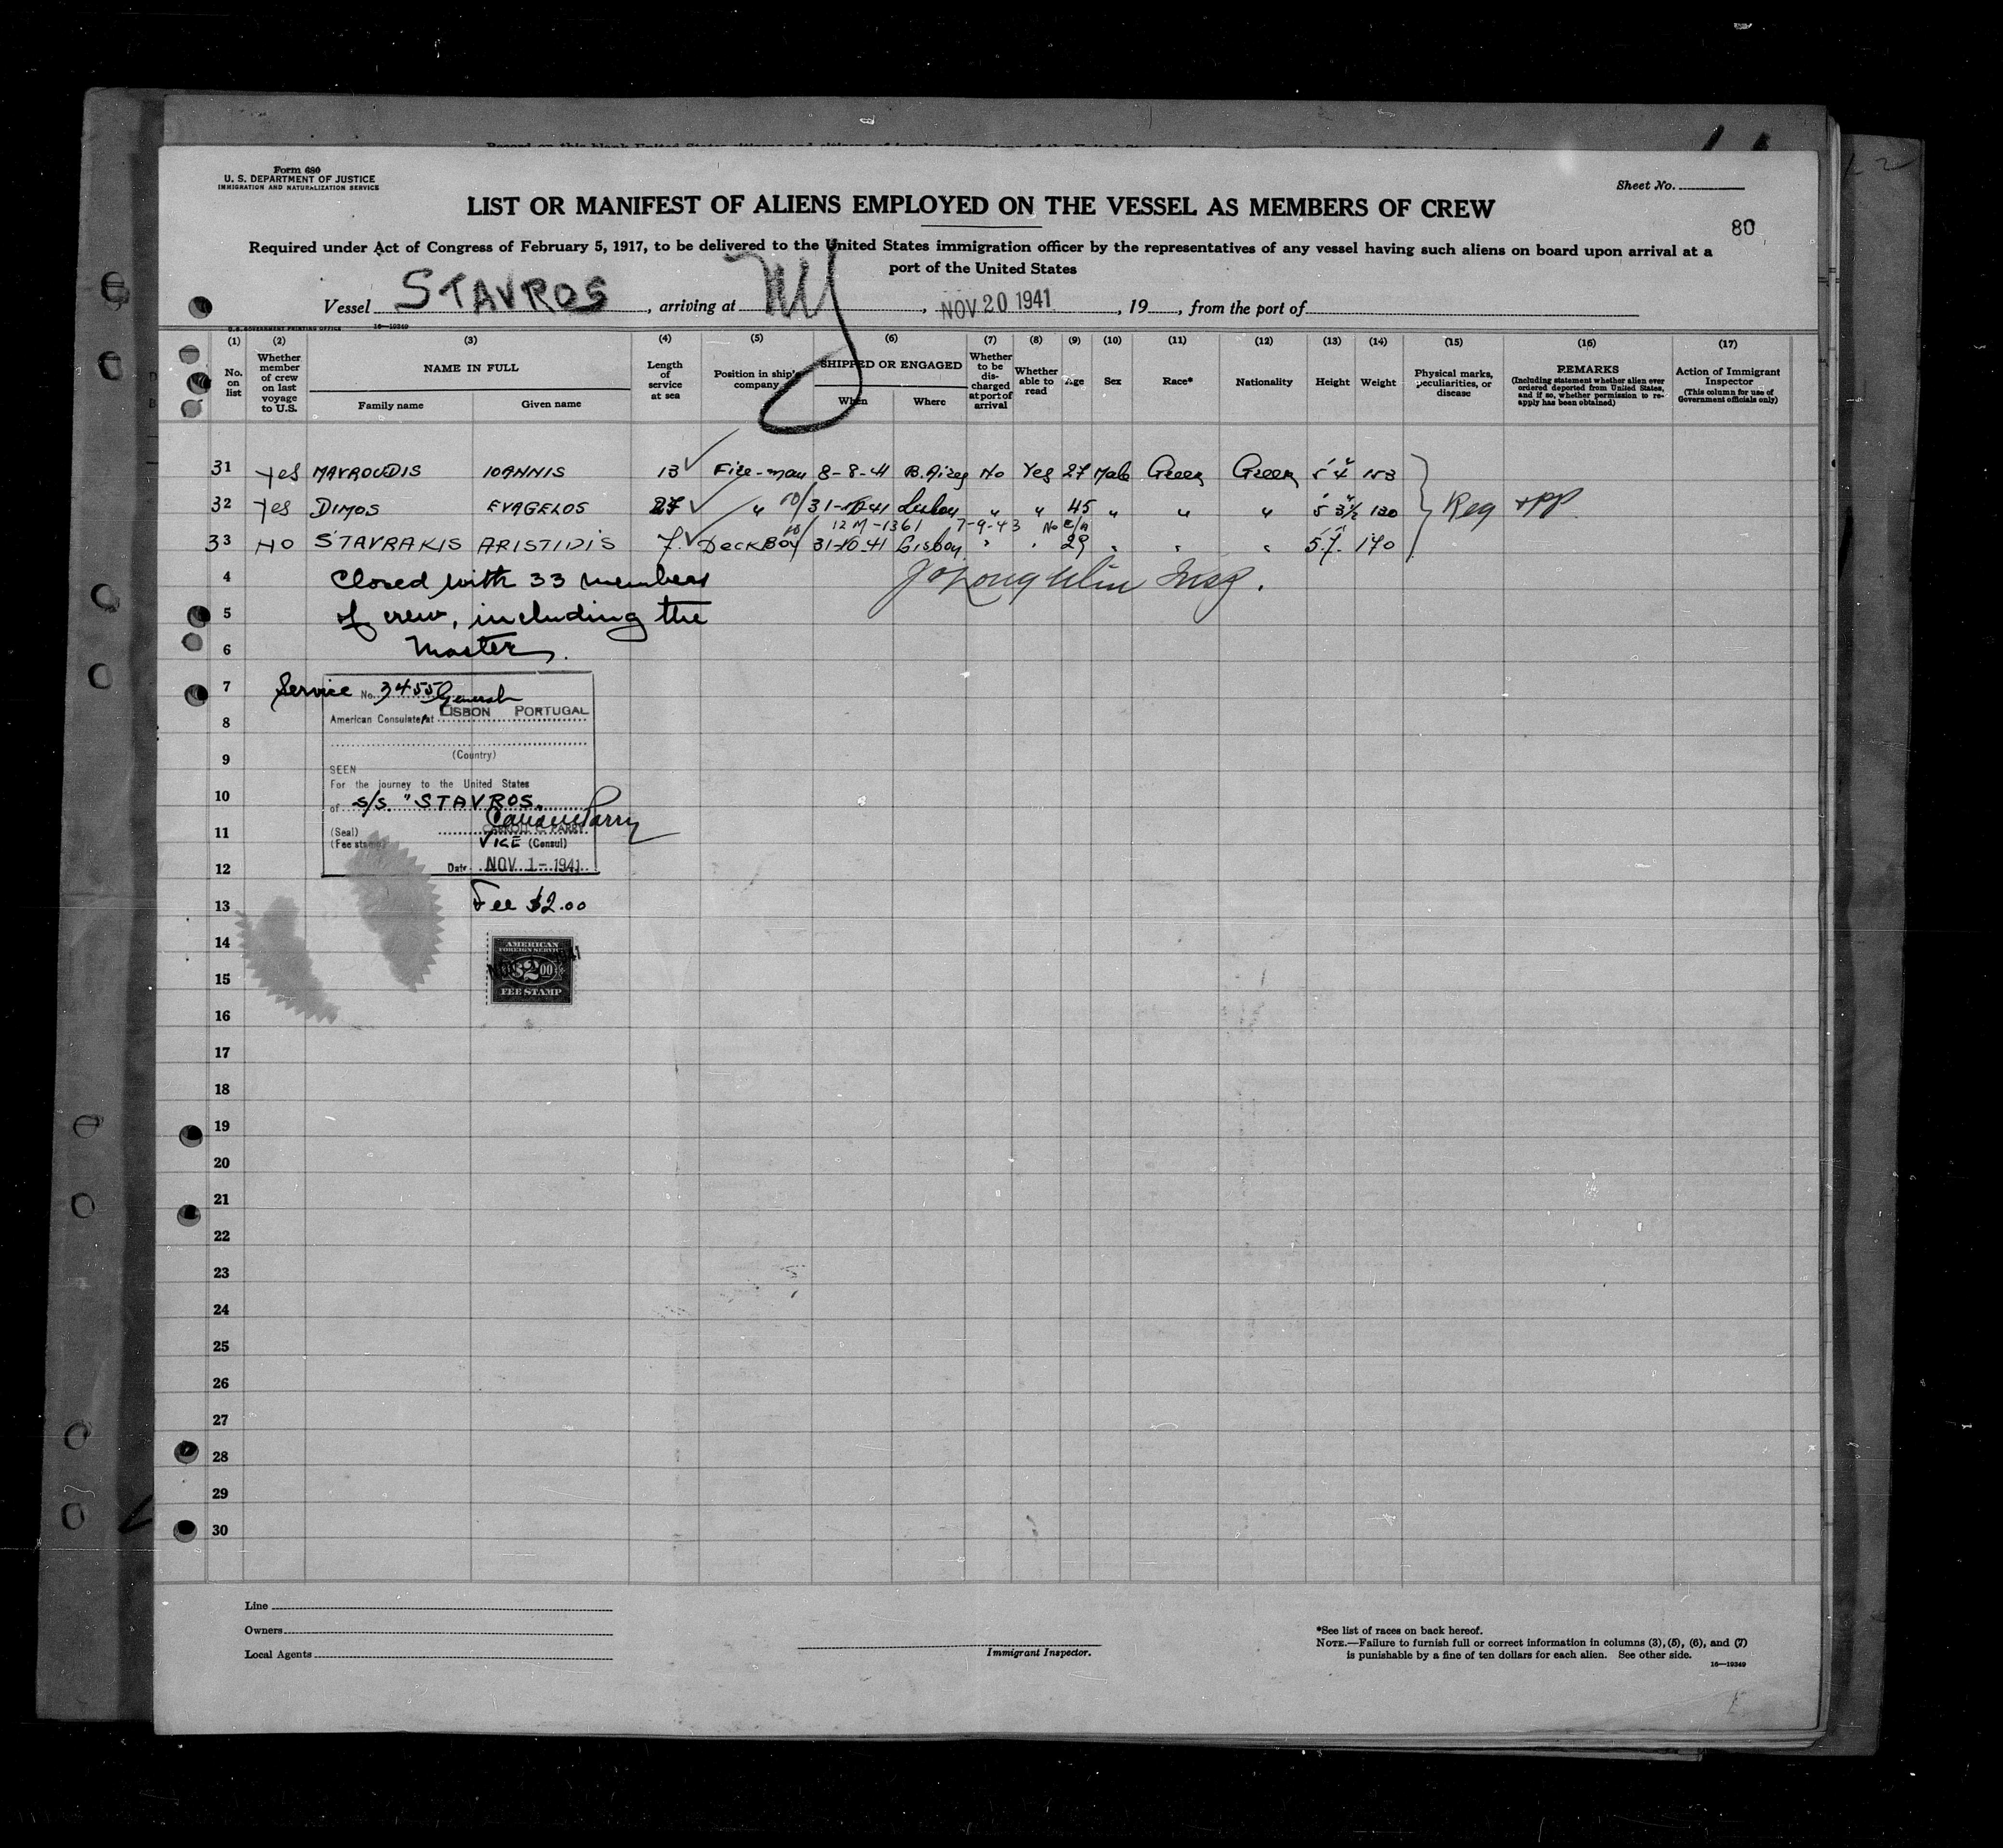 Form 680
U. S. DEPARTMENT OF JUSTICE
IMMIGRATION AND NATURALIZATION SERVICE
Sheet No.
LIST OR MANIFEST OF ALIENS EMPLOYED ON THE VESSEL AS MEMBERS OF CREW
80
Required under Act of Congress of February 5, 1917, to be delivered to the United States immigration officer by the representatives of any vessel having such aliens on board upon arrival at a
port of the United States
Vessel STAVROS, arriving at NY, NOV 20 1941, 19, from the port of
U.S. GOVERNMENT PRINTING OFFICE 16—19349
(1) (2) (3) (4) (5) (6) (7) (8) (9) (10) (11) (12) (13) (14) (15) (16) (17)
No. on list
Whether member of crew on last voyage to U.S.
NAME IN FULL
Family name Given name
Length of service at sea
Position in ship's company
SHIPPED OR ENGAGED
When Where
Whether to be discharged at port of arrival
Whether able to read
Age
Sex
Race*
Nationality
Height
Weight
Physical marks, peculiarities, or disease
REMARKS
(Including statement whether alien ever ordered deported from United States, and if so, whether permission to re-apply has been obtained)
Action of Immigrant Inspector
(This column for use of Government officials only)
31 yes MAVROUDIS IOANNIS 13 Fire-man 8-8-41 B. Aires No Yes 27 Male Greek Greek 5' 4" 153
32 yes DIMOS EVAGELOS 27 " 31-10-41 Lisbon " " 45 " " " 5' 3"½ 130 Reg + PP
12 M-1361 7-9-43 No
33 NO STAVRAKIS ARISTIDIS 7 Deck Boy 31-10-41 Lisbon " " 29 " " " 5' 7" 170
4 Closed with 33 members
5 of crew, including the
6 Master.
J O'Loughlin Insp.
7 Service No. 3455 General
8 American Consulate at LISBON PORTUGAL
9 (Country)
SEEN
For the journey to the United States
10 of s/s. "STAVROS"
11 (Seal) CARROLL C. PARRY
(Fee stamp) VICE (Consul)
12 Date NOV 1-1941
13 Fee $2.00
14 AMERICAN
FOREIGN SERVICE
$2.00
15 FEE STAMP
16
17
18
19
20
21
22
23
24
25
26
27
28
29
30
Line
Owners
Local Agents
Immigrant Inspector.
*See list of races on back hereof.
NOTE.—Failure to furnish full or correct information in columns (3), (5), (6), and (7)
is punishable by a fine of ten dollars for each alien. See other side.
16—19349